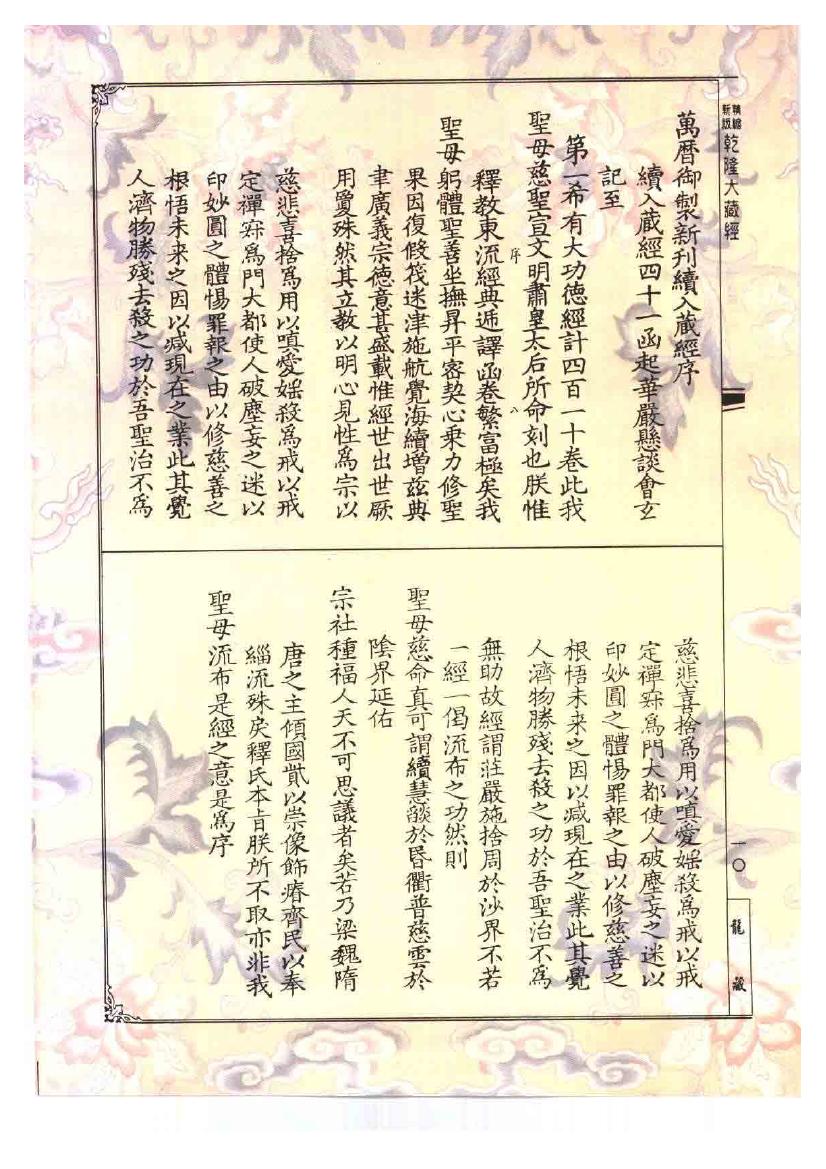 精縮新版 乾隆大藏經
萬曆御製新刊續入藏經序
續入藏經四十一函起華嚴懸談會玄
記至
第一希有大功德經計四百一十卷此我
聖母慈聖宣文明肅皇太后所命刻也朕惟
序 八
釋教東流經典遞譯函卷繁富極矣我
聖母躬體聖善坐撫昇平密契心乘力修聖
果因復假筏迷津施航覺海續增玆典
聿廣義宗德意甚盛載惟經世出世厥
用爰殊然其立教以明心見性爲宗以
慈悲喜捨爲用以嗔愛婬殺爲戒以戒
定禪寂爲門大都使人破塵妄之迷以
印妙圓之體惕罪報之由以修慈善之
根悟未来之因以减現在之業此其覺
人濟物勝殘去殺之功於吾聖治不爲
慈悲喜捨爲用以嗔愛婬殺爲戒以戒
定禪寂爲門大都使人破塵妄之迷以
印妙圓之體惕罪報之由以修慈善之
根悟未来之因以减現在之業此其覺
人濟物勝殘去殺之功於吾聖治不爲
無助故經謂莊嚴施捨周於沙界不若
一經一偈流布之功然則
聖母慈命真可謂續慧燄於昏衢普慈雲於
陰界延佑
宗社種福人天不可思議者矣若乃梁魏隋
唐之主傾國貲以崇像飾瘠齊民以奉
緇流殊戾釋氏本旨朕所不取亦非我
聖母流布是經之意是爲序
一〇
龍藏